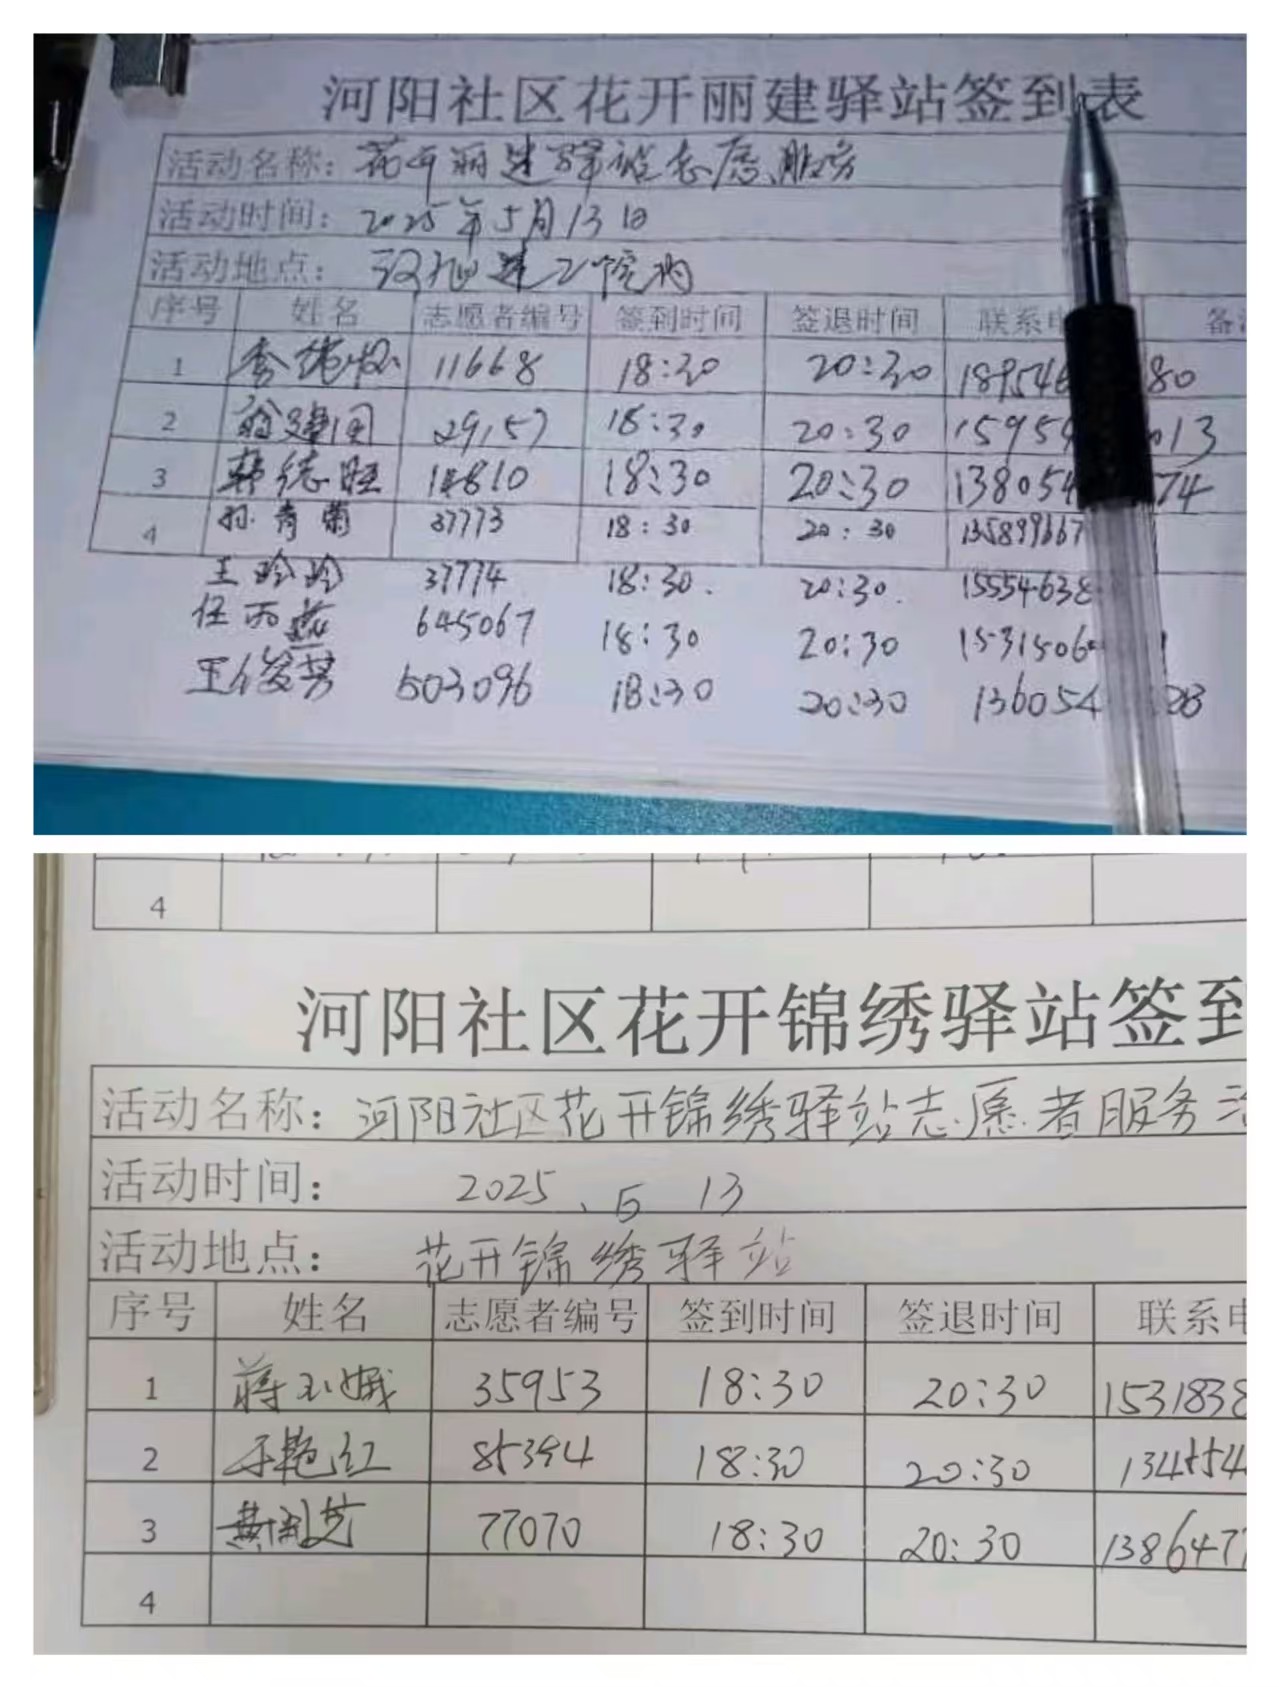 河阳社区花开丽建驿站签到表
活动名称：花开丽建驿站志愿服务
活动时间：2025年5月13日
活动地点：
序号 姓名 志愿者编号 签到时间 签退时间 联系电 备
1 11668 18:30 20:30 189546 80
2 29157 18:30 20:30 15959 013
3 韩德旺 14810 18:30 20:30 138054 74
4 孙青菊 37773 18:30 20:30 135899667
王玲玲 37774 18:30. 20:30. 15554638
任丙燕 645067 18:30 20:30 15315060 1
王俊芳 503096 18:30 20:30 136054 28
4
河阳社区花开锦绣驿站签到
活动名称：河阳社区花开锦绣驿站志愿者服务活
活动时间： 2025、5 13
活动地点： 花开锦绣驿站
序号 姓名 志愿者编号 签到时间 签退时间 联系电
1 蒋玉娥 35953 18:30 20:30 1531838
2 于艳红 85394 18:30 20:30 134554
3 77070 18:30 20:30 1386477
4